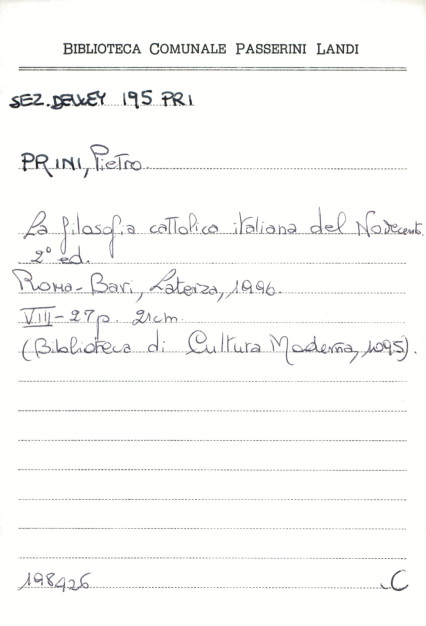 BIBLIOTECA COMUNALE PASSERINI LANDI
SEZ. DEWEY 195 PRI
PRINI, Pietro
La filosofia cattolica italiana del Novecento.
2° ed.
Roma-Bari, Laterza, 1996.
VIII-27p. 21cm
(Biblioteca di Cultura Moderna, 1095).
198426 C